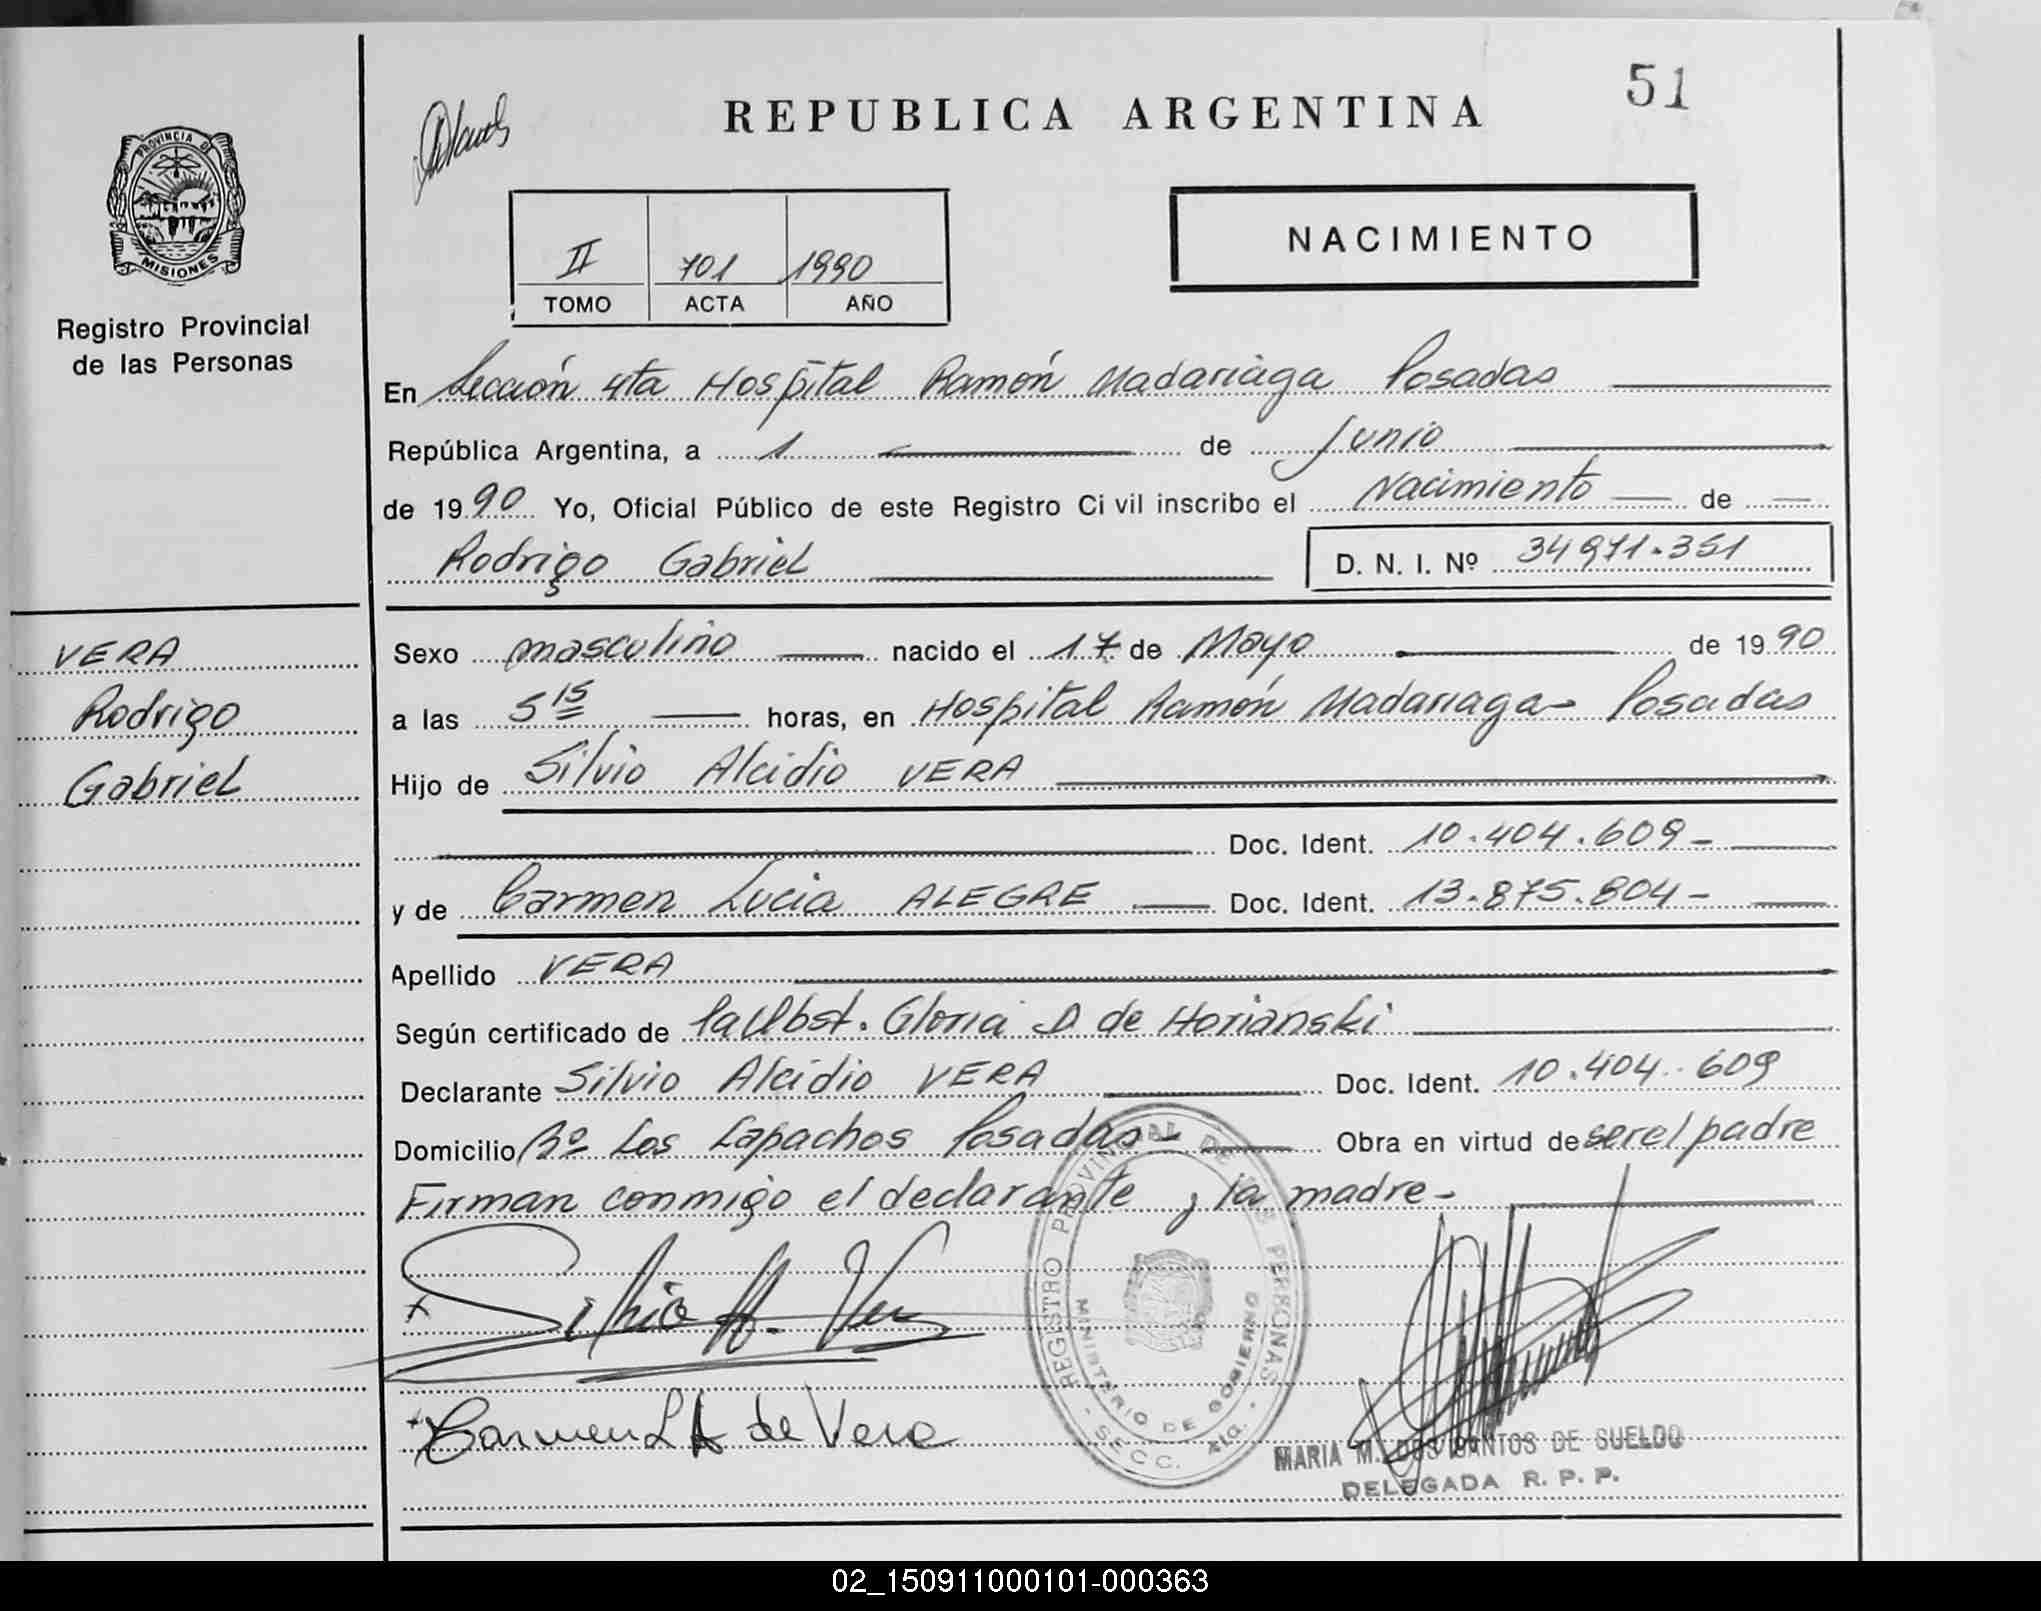 51
REPUBLICA ARGENTINA
PROVINCIA DE
MISIONES
Registro Provincial
de las Personas
II 701 1990
TOMO ACTA AÑO
NACIMIENTO
En Sección 4ta Hospital Ramón Madariaga Posadas
República Argentina, a 1 de Junio
de 1990 Yo, Oficial Público de este Registro Civil inscribo el Nacimiento de
Rodrigo Gabriel D. N. I. Nº 34971.351
VERA
Rodrigo
Gabriel
Sexo masculino nacido el 17 de Mayo de 1990
a las 5 15 horas, en Hospital Ramón Madariaga - Posadas
Hijo de Silvio Alcidio VERA
Doc. Ident. 10.404.609-
y de Carmen Lucia ALEGRE Doc. Ident. 13.875.804-
Apellido VERA
Según certificado de la Obst. Gloria D de Horianski
Declarante Silvio Alcidio VERA Doc. Ident. 10.404.609
Domicilio Bº Los Lapachos Posadas- Obra en virtud de ser el padre
Firman conmigo el declarante y la madre-
REGISTRO PROVINCIAL DE LAS PERSONAS
MINISTERIO DE GOBIERNO
- SECC. 4ta. -
Silvio A. Vera
Carmen L A de Vera
MARIA M. DOS SANTOS DE SUELDO
DELEGADA R. P. P.
02_150911000101-000363